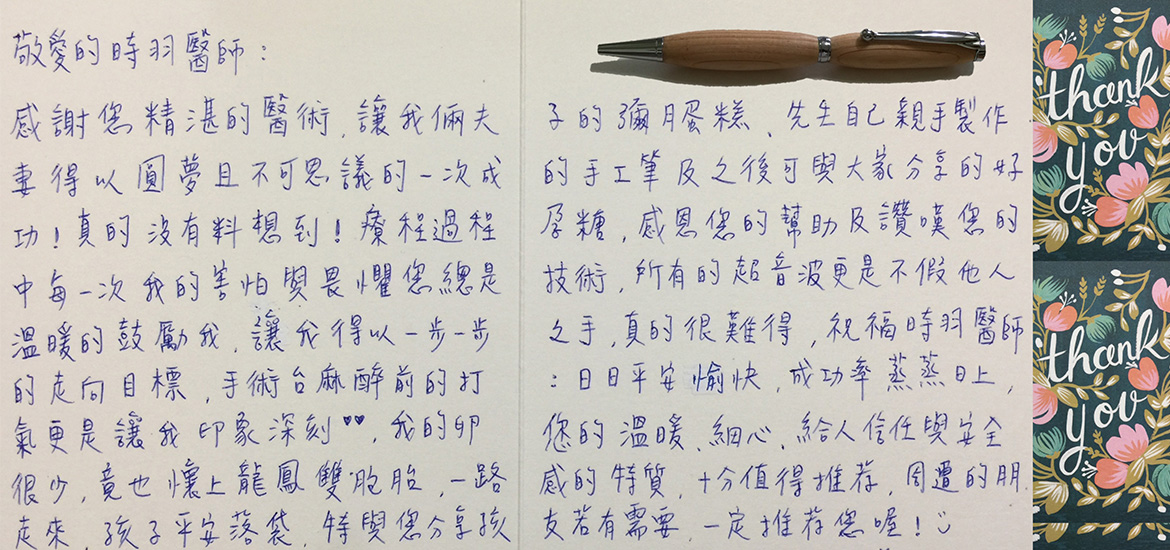 敬愛的時羽醫師：
感謝您精湛的醫術，讓我倆夫
妻得以圓夢且不可思議的一次成
功！真的沒有料想到！療程過程
中每一次我的害怕與畏懼您總是
溫暖的鼓勵我，讓我得以一步一步
的走向目標，手術台麻醉前的打
氣更是讓我印象深刻♥♥，我的卵
很少，竟也懷上龍鳳雙胞胎，一路
走來，孩子平安落袋，特與您分享孩
子的彌月蛋糕、先生自己親手製作
的手工筆及之後可與大家分享的好
孕糖，感恩您的幫助及讚嘆您的
技術，所有的超音波更是不假他人
之手，真的很難得，祝福時羽醫師
：日日平安愉快，成功率蒸蒸日上，
您的溫暖、細心、給人信任與安全
感的特質，十分值得推荐，周遭的朋
友若有需要，一定推荐您喔！☺
thank
you
thank
you